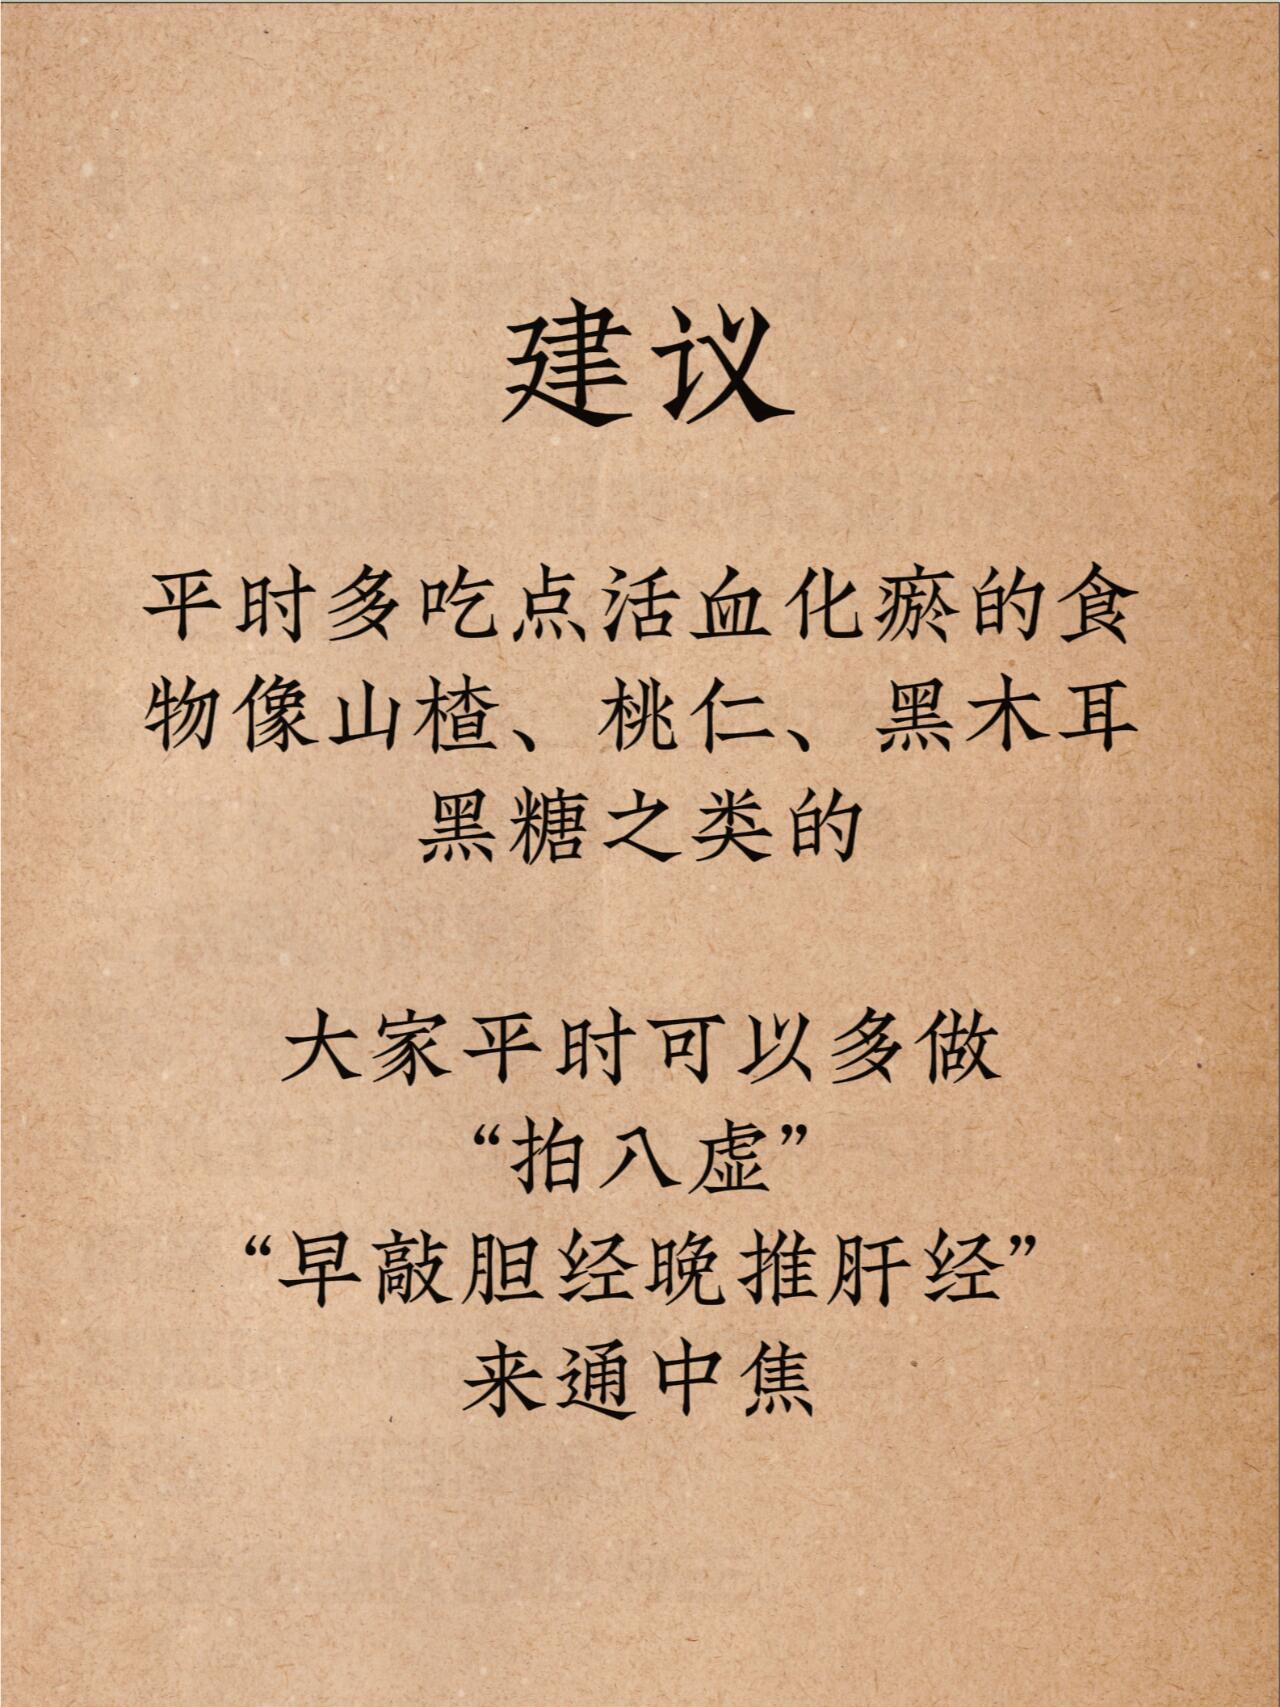 建议
平时多吃点活血化瘀的食
物像山楂、桃仁、黑木耳
黑糖之类的
大家平时可以多做
“拍八虚”
“早敲胆经晚推肝经”
来通中焦